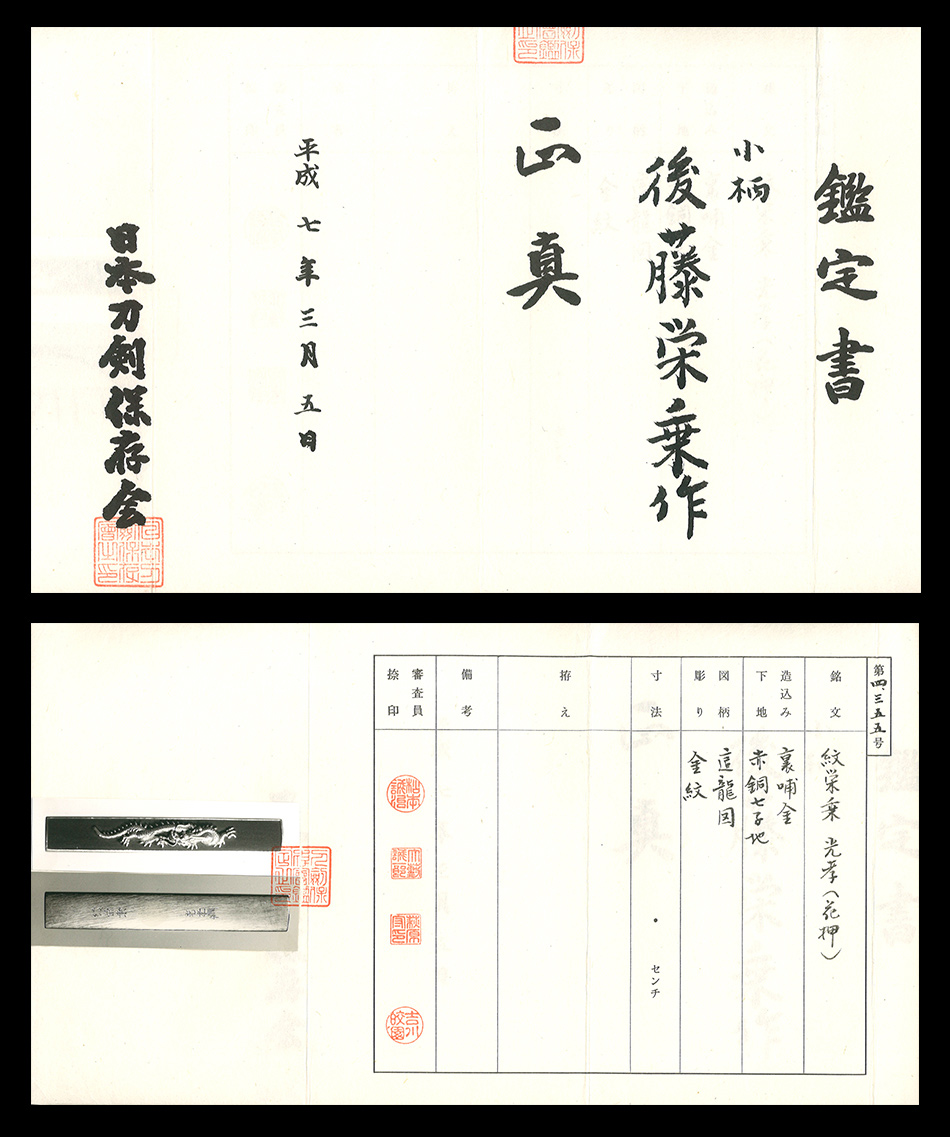 鑑定書
小柄
後藤栄乗作
正真
平成七年三月五日
日本刀剣保存会
第四、三五五号
銘文
紋栄乗 光孝(花押)
造込み
下地
裏哺金
赤銅七子地
図柄
彫り
這龍図
金紋
寸法
・ センチ
拵え
備考
審査員
捺印